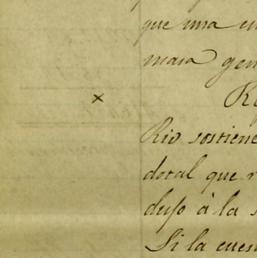 que una
masa gen
×
Rio sostiene
dotal que
dujo á la s
Si la cues